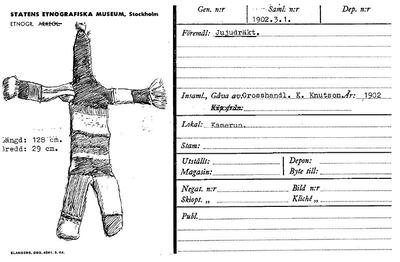 STATENS ETNOGRAFISKA MUSEUM, Stockholm
ETNOGR. ARKEOL.
Längd: 128 cm.
Bredd: 29 cm.
Gen. n:r
Saml. n:r
Dep. n:r
1902.3.1.
Föremål: Jujudräkt.
Insaml., Gåva av: Grosshandl. K. Knutson. År: 1902
Köpt från:
Lokal: Kamerun.
Stam:
Utställs:
Depon:
Magasin:
Byte till:
Negat. n:r
Bild n:r
Skiopt. „
Kliché „
Publ.